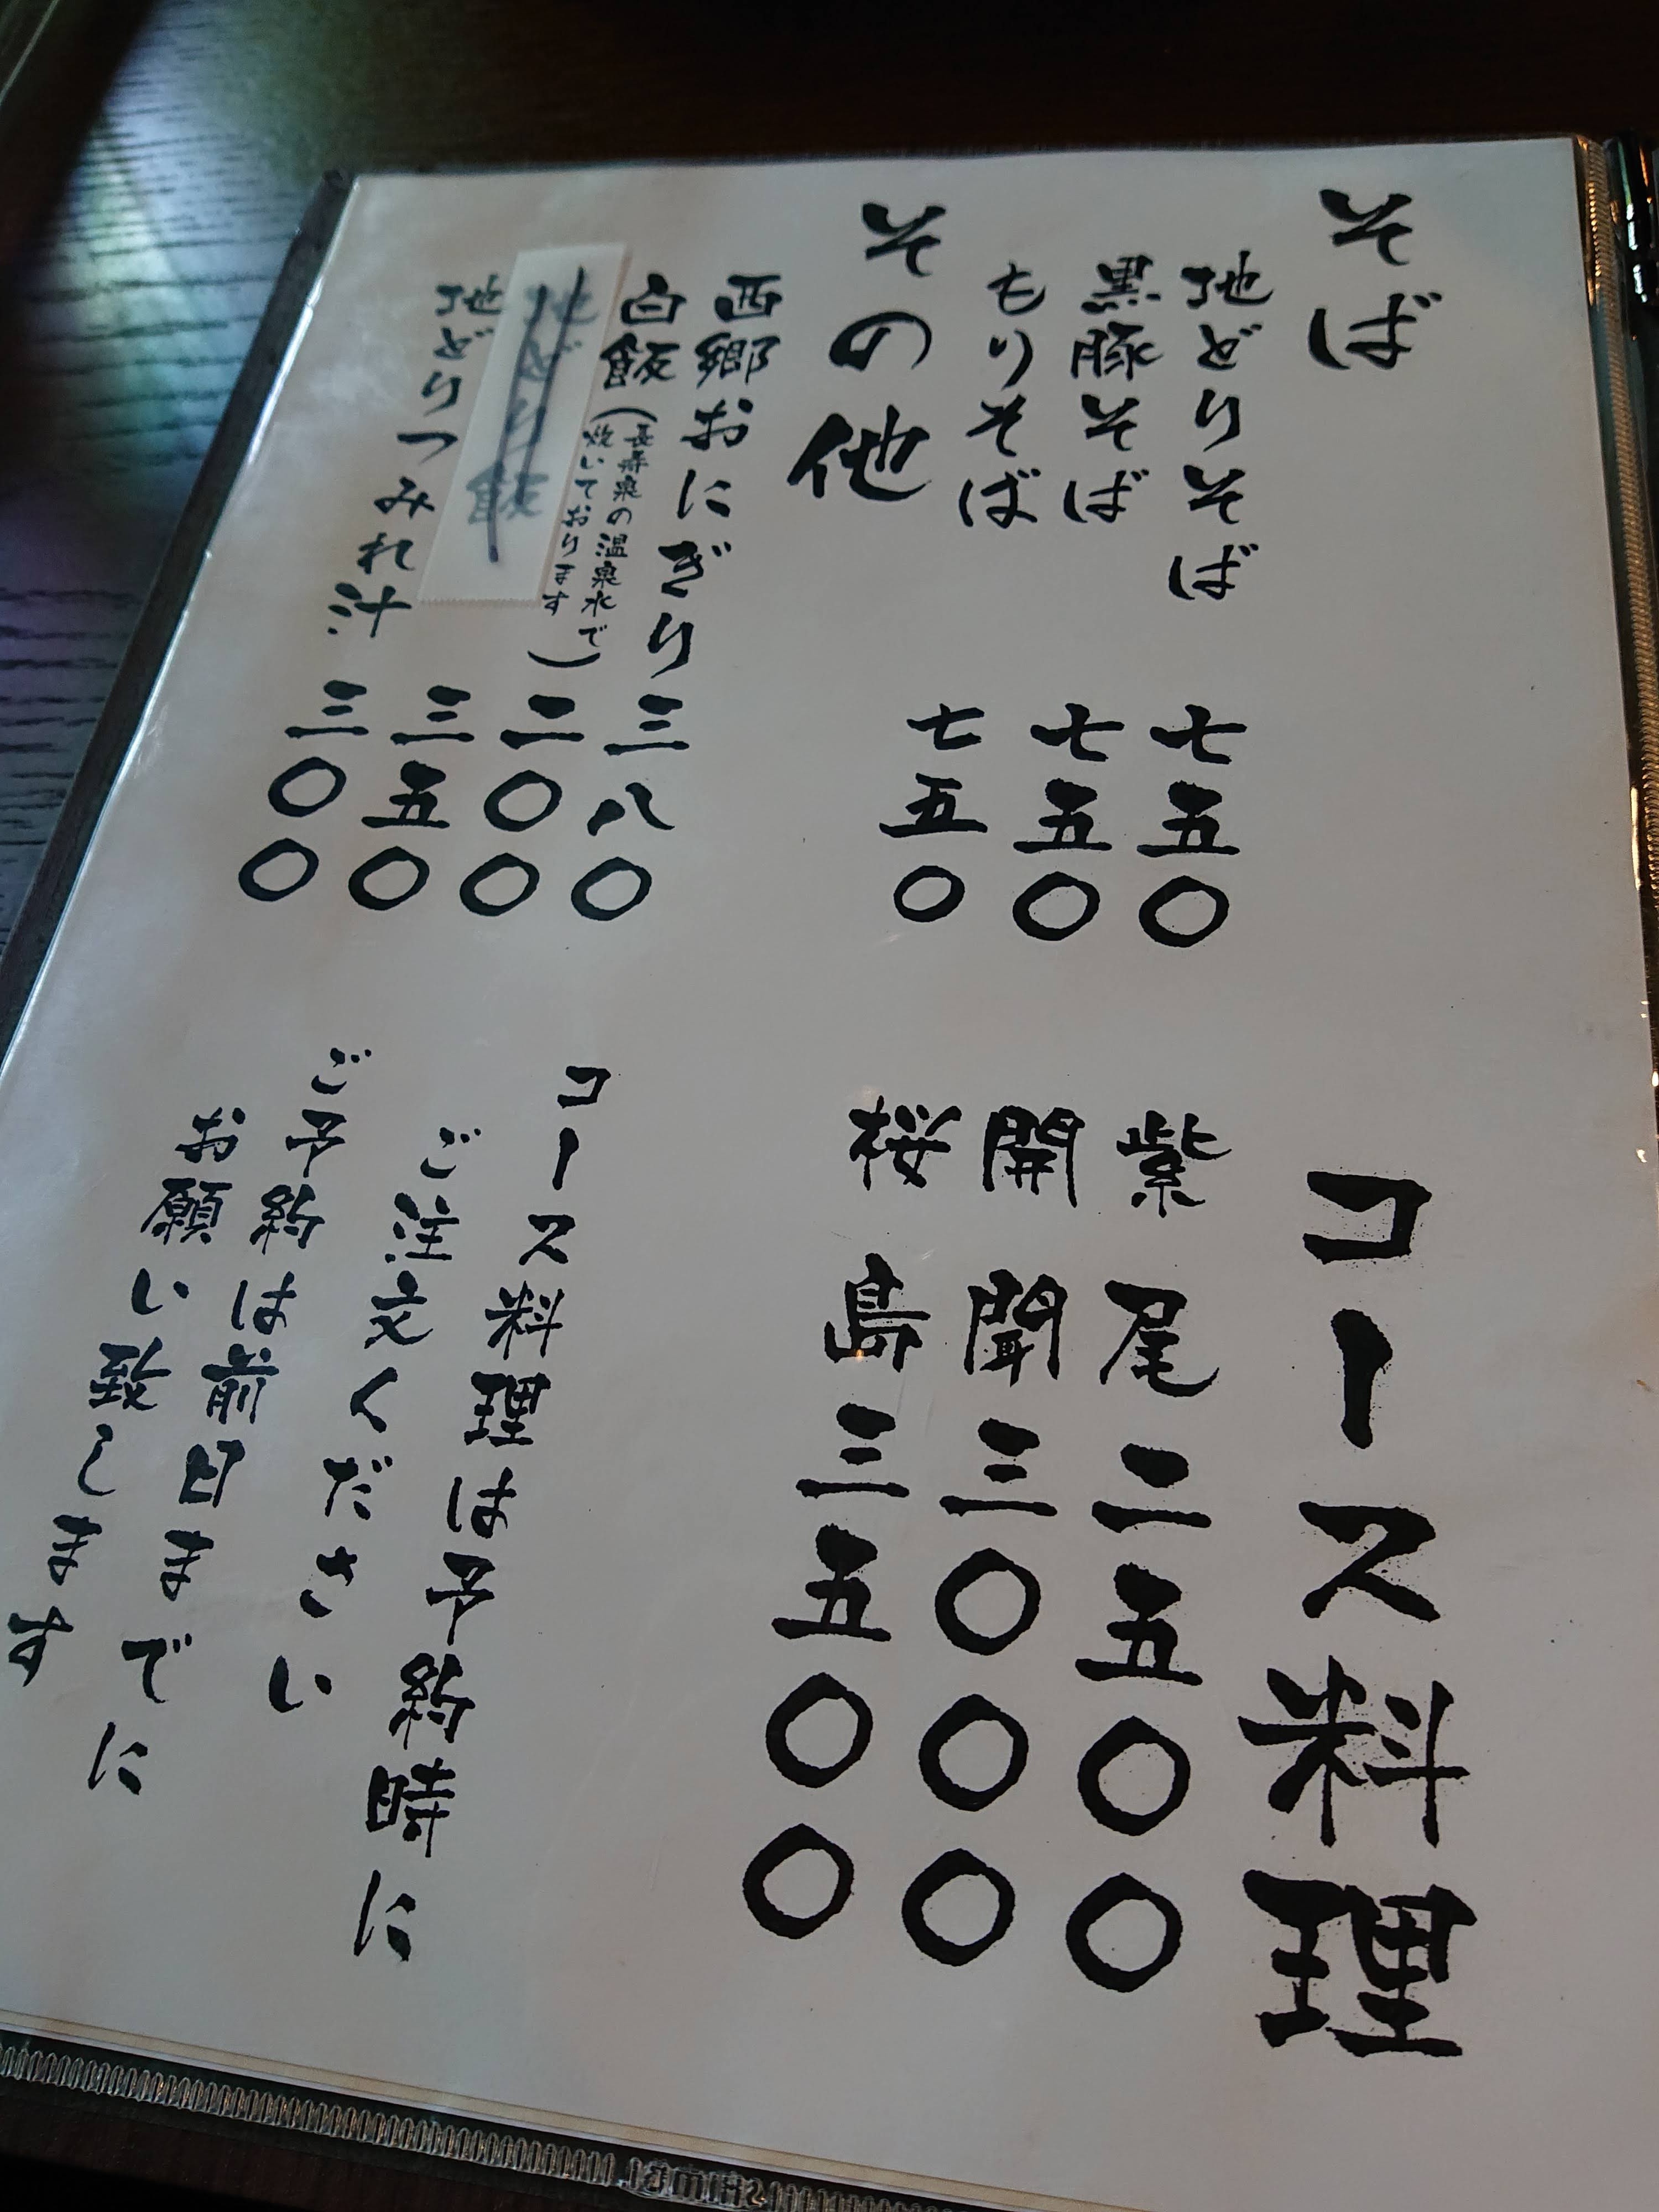 そば
地どりそば 七五〇
黒豚そば 七五〇
もりそば 七五〇
その他
西郷おにぎり 三八〇
白飯(長寿泉の温泉水で 二〇〇
炊いております)
地どり飯 三五〇
地どりつみれ汁 三〇〇
コース料理
紫尾 二五〇〇
開聞 三〇〇〇
桜島 三五〇〇
コース料理は予約時に
ご注文ください
ご予約は前日までに
お願い致します